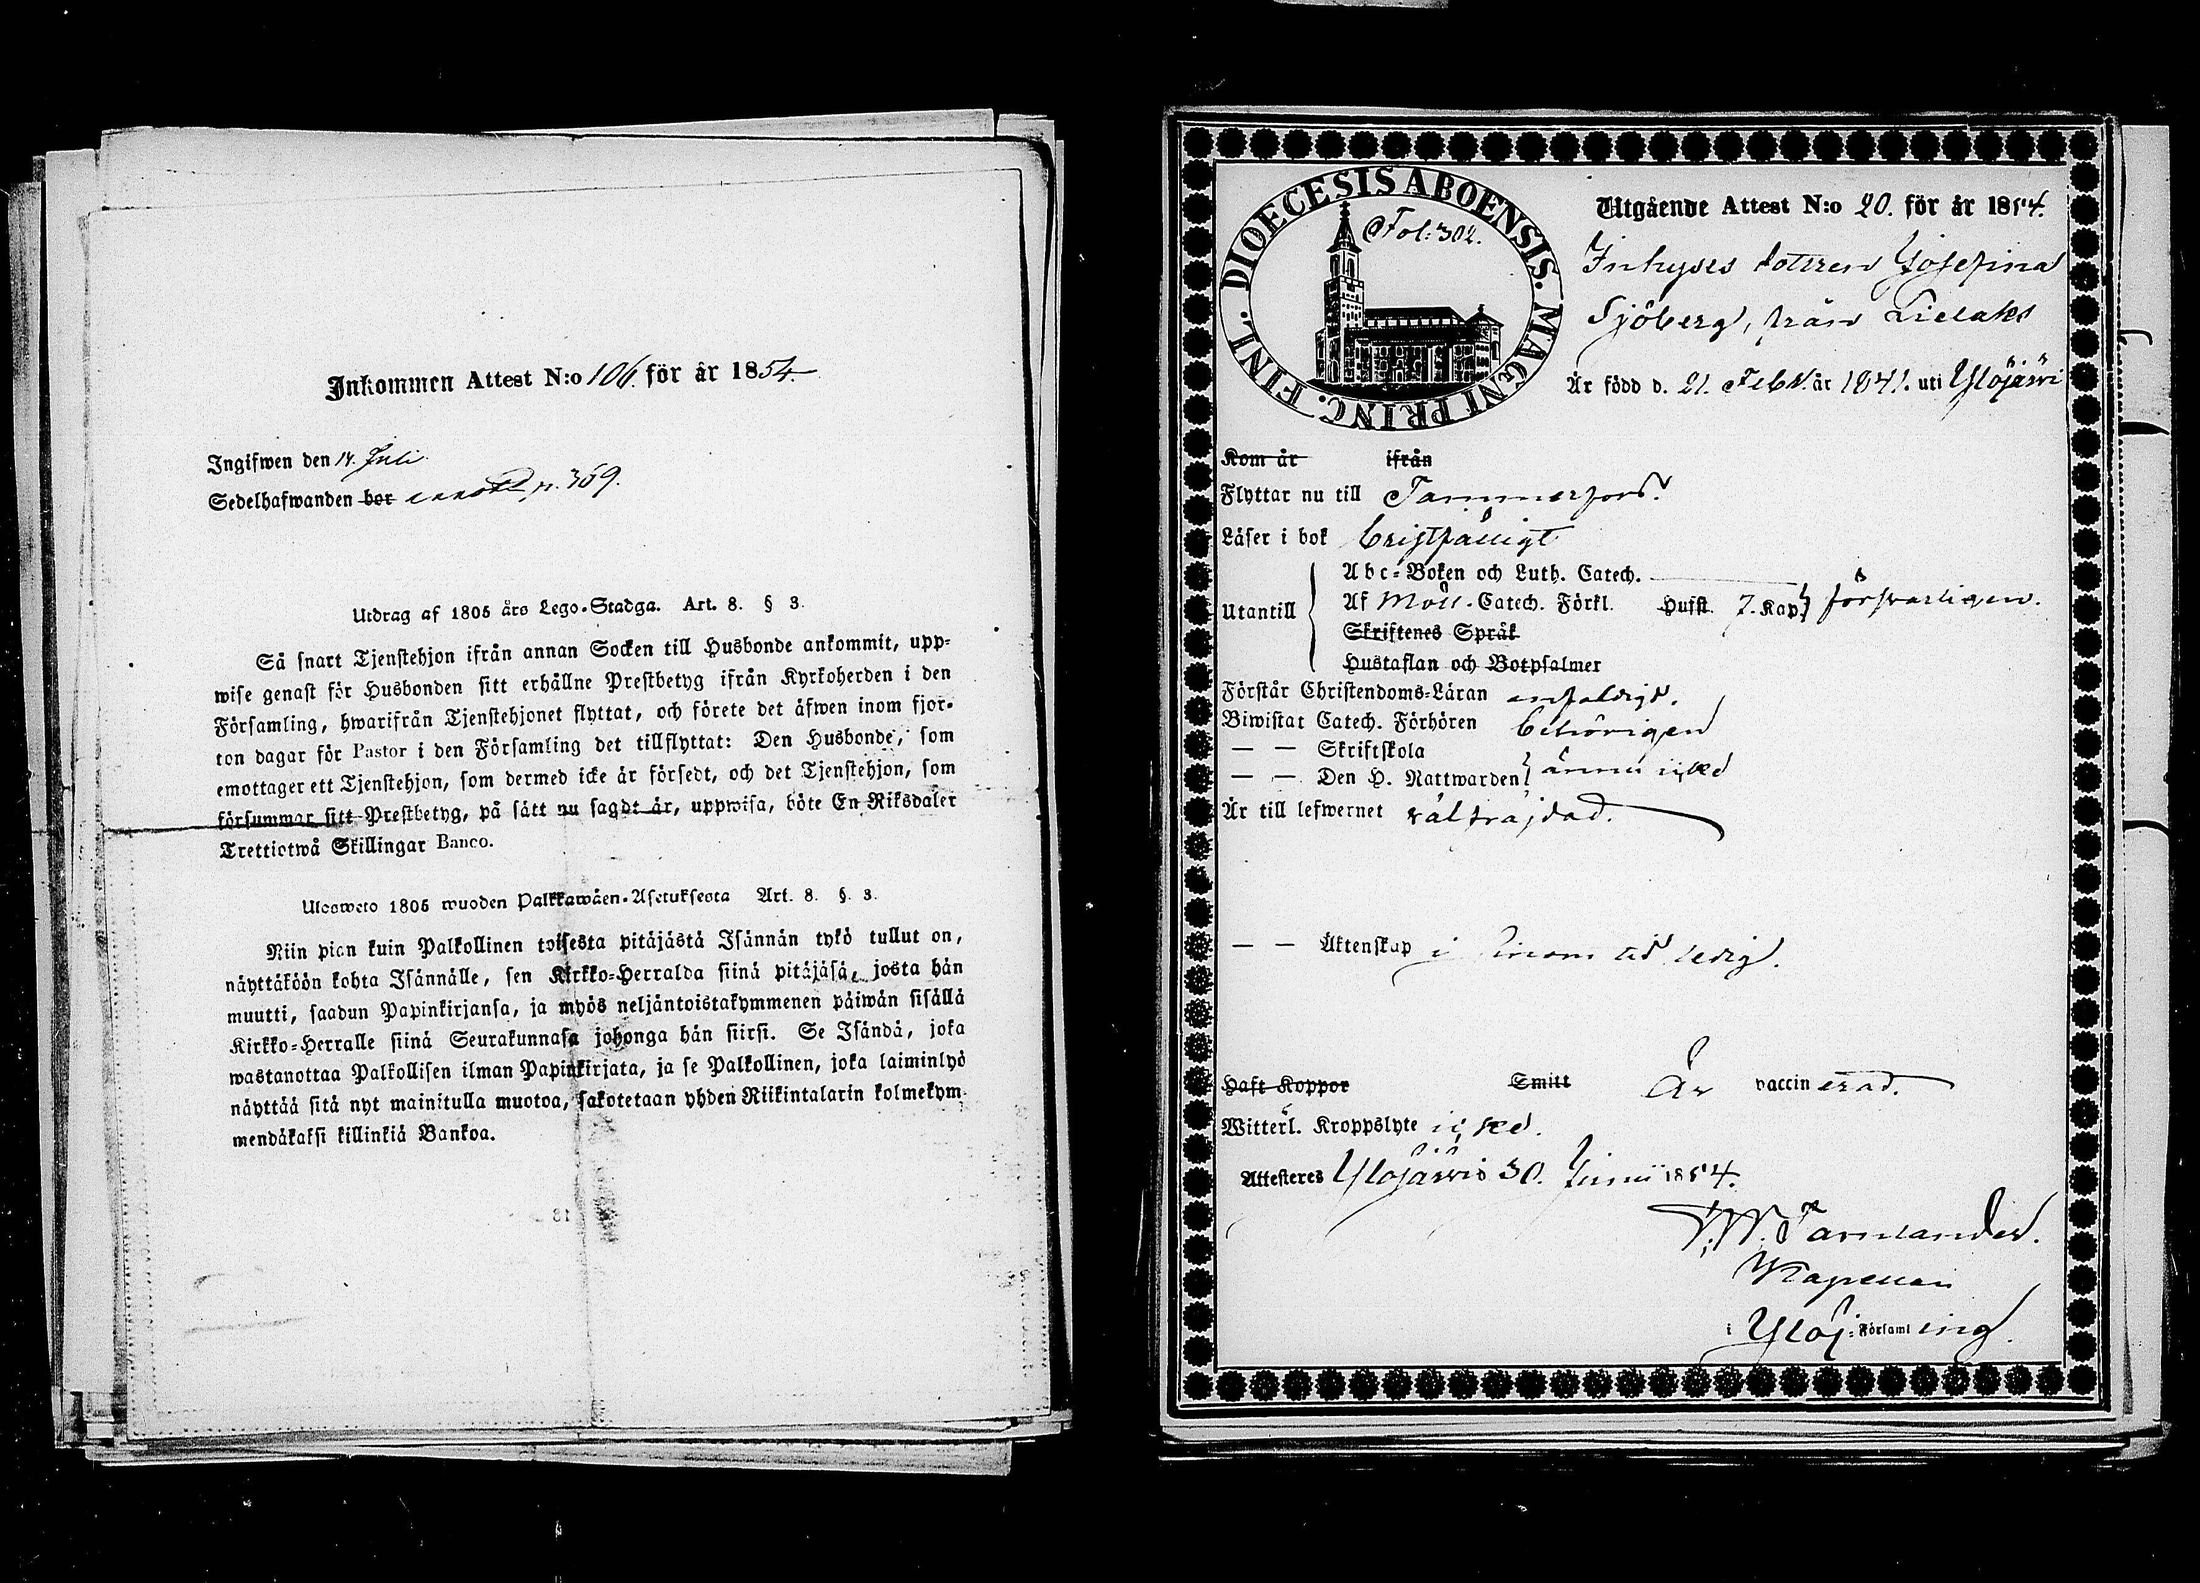 Inkommen Attest N:o 106. för år 1854.
Ingifwen den 14. Juli
Sedelhafwanden bor p. 369.
Utdrag af 1805 års Lego-Stadga. Art. 8. § 3.
Så snart Tjenstehjon ifrån annan Socken till Husbonde ankommit, upp-
wise genast för Husbonden sitt erhållne Prestbetyg ifrån Kyrkoherden i den
Församling, hwarifrån Tjenstehjonet flyttat, och förete det äfwen inom fjor-
ton dagar för Pastor i den Församling det tillflyttat: Den Husbonde, som
emottager ett Tjenstehjon, som dermed icke är försedt, och det Tjenstehjon, som
försummar sitt Prestbetyg, på sätt nu sagdt är, uppwisa, böte En Riksdaler
Trettiotwå Skillingar Banco.
Ulosweto 1805 wuoden Palkkawäen-Asetuksesta Art. 8. §. 3.
Niin pian kuin Palkollinen toisesta pitäjästä Isännän tykö tullut on,
näyttäköön kohta Isännälle, sen Kirkko-Herralda siinä pitäjäsä, josta hän
muutti, saadun Papinkirjansa, ja myös neljäntoistakymmenen päiwän sisällä
Kirkko-Herralle siinä Seurakunnasa johonga hän siirsi. Se Isändä, joka
wastanottaa Palkollisen ilman Papinkirjata, ja se Palkollinen, joka laiminlyö
näyttää sitä nyt mainitulla muotoa, sakotetaan yhden Riikintalarin kolmekym-
mendäkaksi killinkiä Bankoa.
DIOECESIS ABOENSIS. MAGNI PRINC. FINL.
Fol: 302.
Utgående Attest N:o 20. för år 1854.
Inhyses dottren Josefina
Sjöberg, från Lielaks
Är född d. 21. Febr. år 1841. uti Ylöjärvi
Kom år ifrån
Flyttar nu till Tammerfors.
Läser i bok bristfälligt
Utantill
Abc-Boken och Luth. Catech.
Af Möll. Catech. Förkl. Husst. 7. Kap. försvarligen.
Skriftenes Språk
Hustaflan och Botpsalmer
Förstår Christendoms-Läran enfaldigt.
Biwistat Catech. Förhören behörigen
— — Skriftskola
— — Den H. Nattwarden ännu icke
Är till lefwernet välfrajdad.
— — Äktenskap i ledig.
Haft Koppor Smitt Är vaccinerad.
Witterl. Kroppslyte icke.
Attesteres Ylöjärvi 30. Junii 1854.
Kapellan
i Ylöj: Församling.